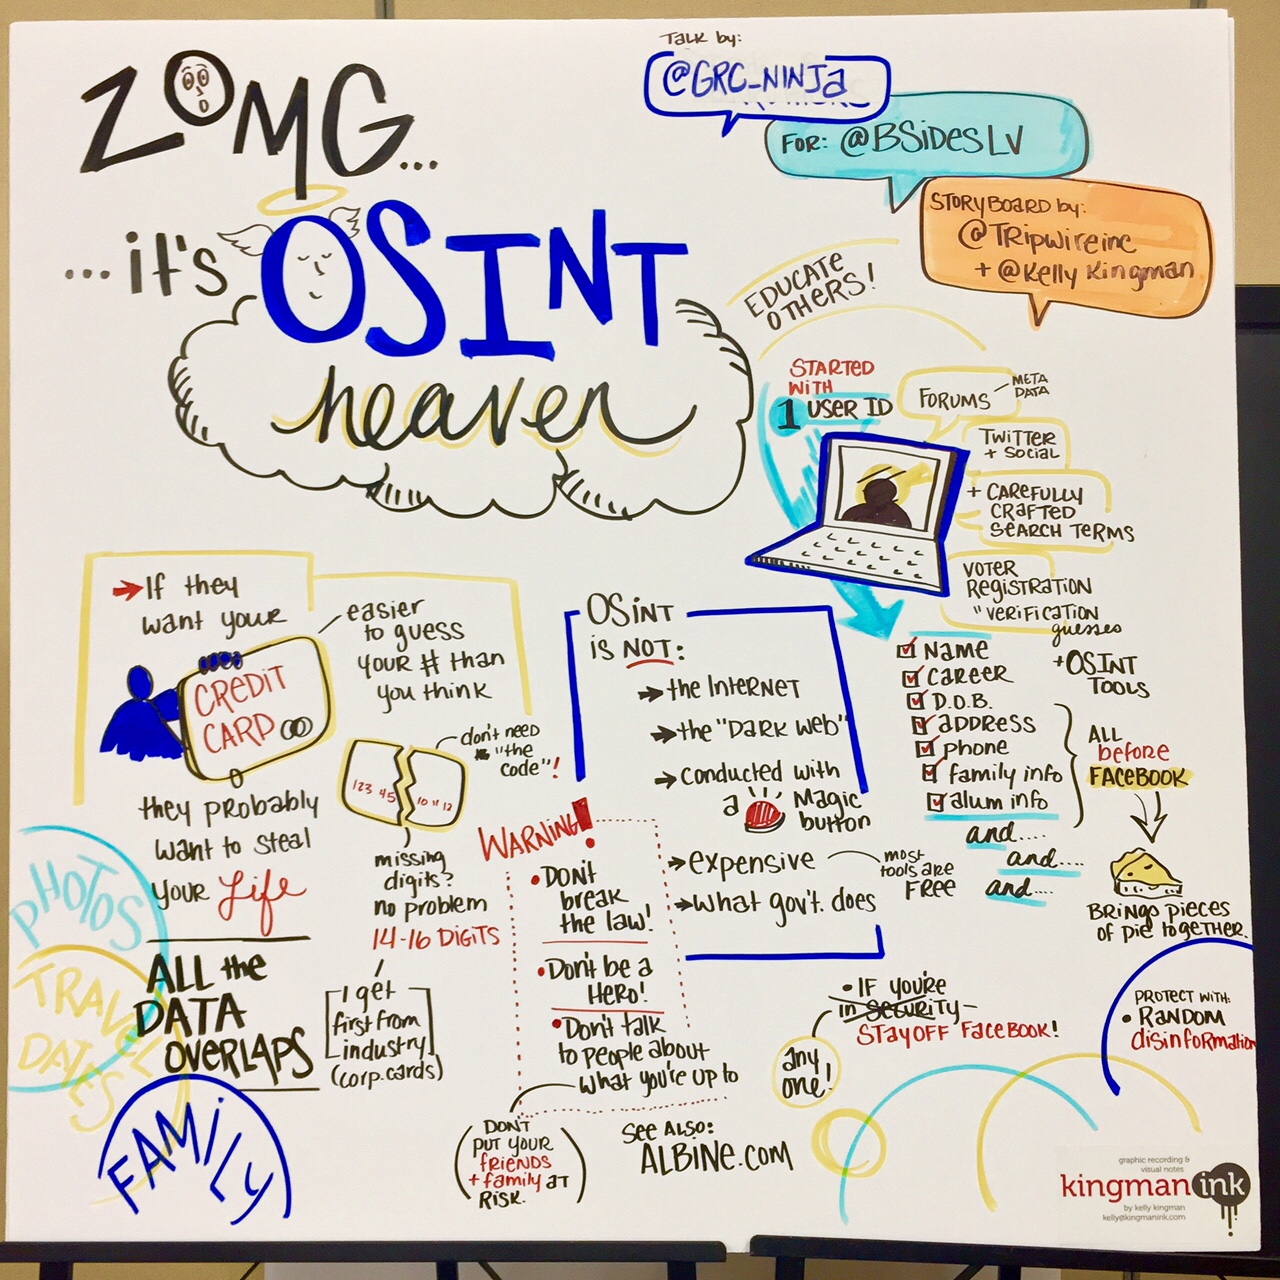 ZOMG...
...it's OSINT
heaven
Talk by:
@GRC_NINJa
FOR: @BSidesLV
STORYBOARD by:
@TRipwireinc
+ @Kelly Kingman
EDUCATE
OTHERS!
STARTED
WITH
1 USER ID
FORUMS
META
DATA
TWITTER
+ SOCIAL
+ CAREFULLY
CRAFTED
SEARCH TERMS
VOTER
REGISTRATION
"VERIFICATION
guesses
+OSINT
TOOLS
NAME
CAREER
D.O.B.
aDDRESS
phone
family info
alum info
and....
and....
and....
ALL
before
FACEBOOK
BRINGS PIECES
OF pie together.
If they
want your
CREDIT
CARD
they probably
want to steal
your Life
easier
to guess
your # than
you think
don't need
"the
code"!
123 45
10 11 12
missing
digits?
no problem
14-16 DIGITS
I get
first from
industry
(corp. cards)
ALL the
DATA
OVERLAPS
PHOTOS
TRAVEL
DATES
FAMiLy
OSINT
is NOT:
the INTERNET
the "DARK web"
conducted with
a Magic
button
expensive
most
tools are
FREE
what gov't. does
WARNING!
• DON'T
break
the law!
• Don't be a
HERO!
• Don't talk
to people about
what you're up to
DON'T
PUT YOUR
friends
+ family AT
RISK.
SEE ALSO:
ALBINE.COM
• IF YOU'RE
in SECURITY-
STAY OFF FACEBOOK!
any
one!
PROTECT WITH:
• RANDOM
disinformation
graphic recording &
visual notes
kingman ink
by kelly kingman
kelly@kingmanink.com